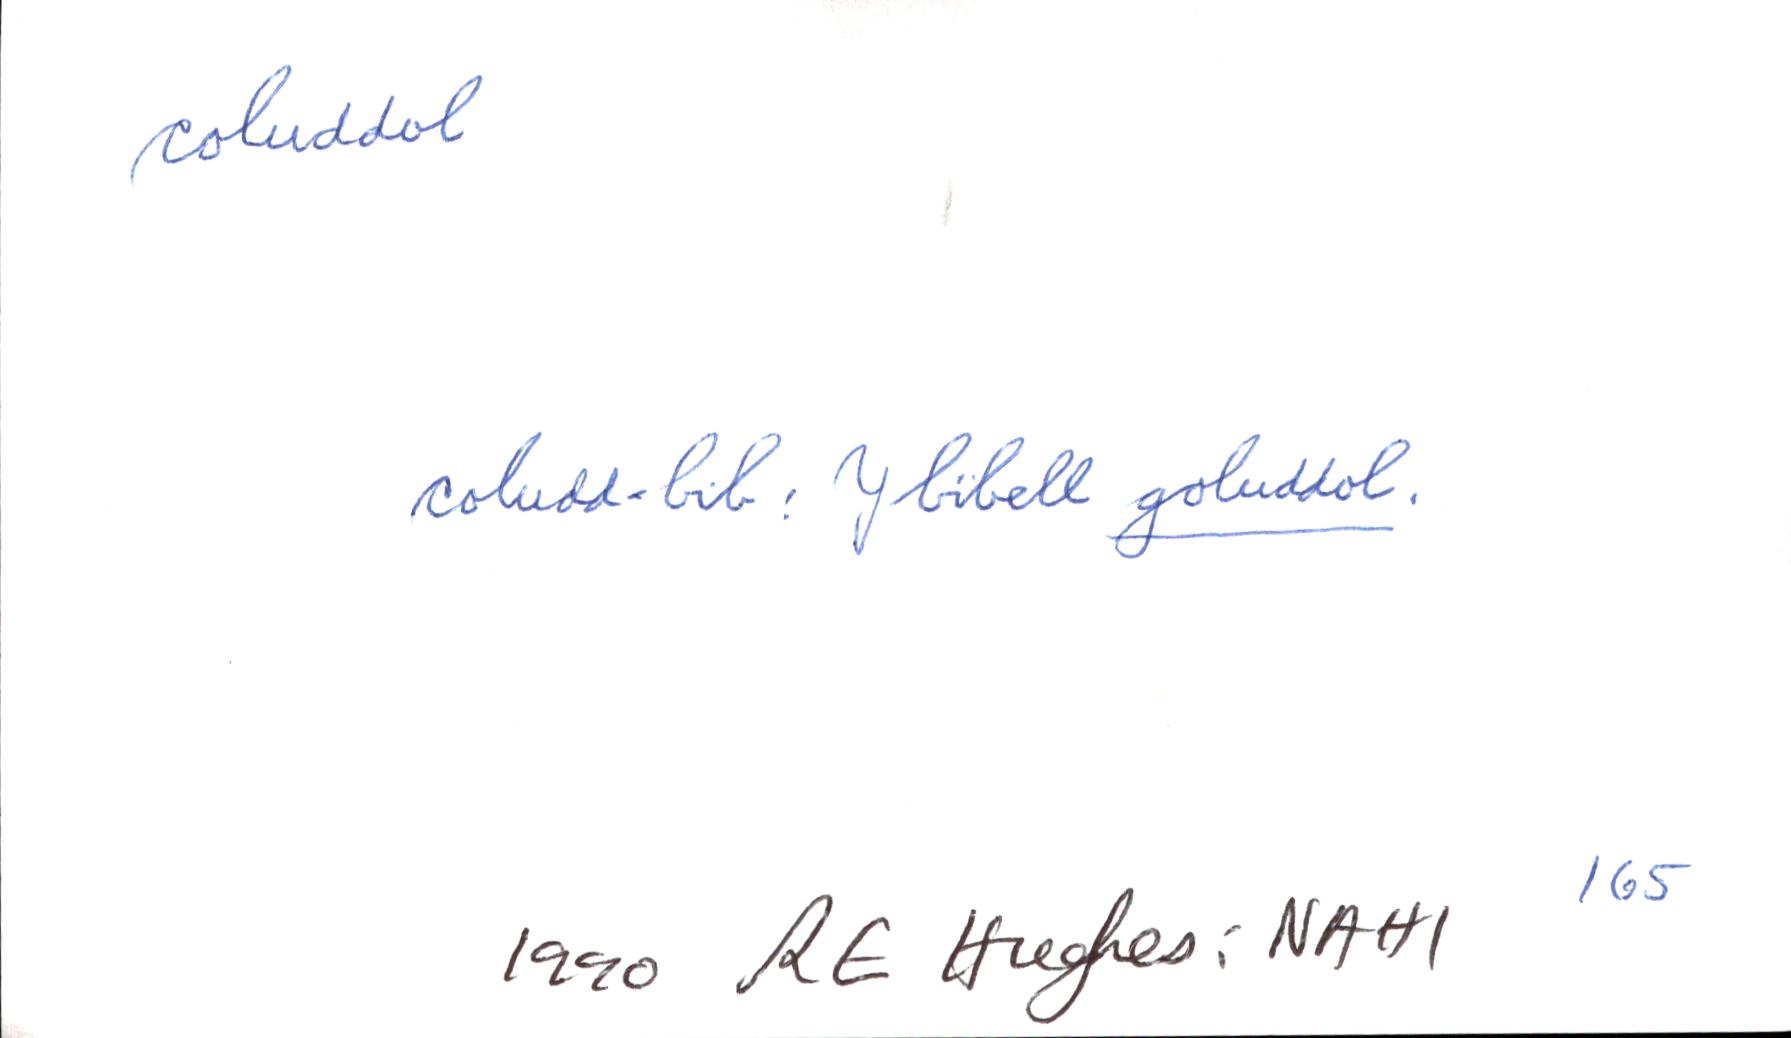 coluddol
coludd-bib: Y bibell goluddol.
165
1990 R E Hughes: NAHI